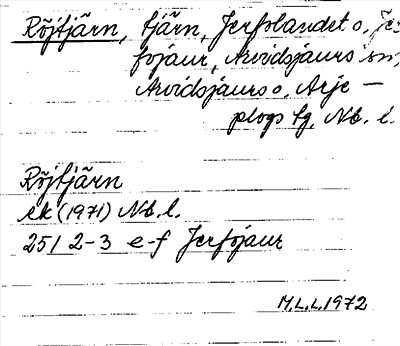 Röjtjärn, tjärn, Jerfolandet o. Jer-
fojaur, Arvidsjaurs sn,
Arvidsjaurs o. Arje-
plogs tg, Nb. l.
Röjtjärn
ek (1971) Nb. l.
25 I 2-3 e-f Jerfojaur
M.L.L. 1972